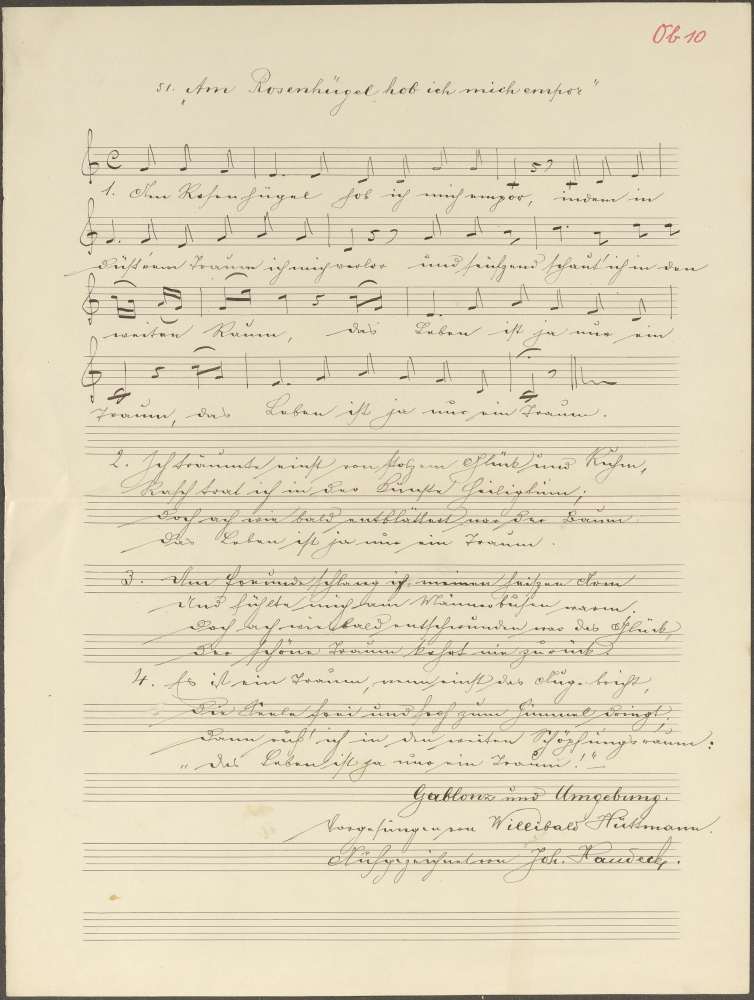 Ob 10
51. „Am Rosenhügel hob ich mich empor“
1. Am Rosenhügel hob ich mich empor, indem in
düst'rem Traume ich mich verlor und seufzend schaut' ich in den
weiten Raum, das Leben ist ja nur ein
Traum, das Leben ist ja nur ein Traum.
2. Ich träumte einst von stolzem Glück und Ruhm,
Rasch trat ich in der Künste Heiligtum;
Doch ach wie bald entblättert war der Baum
Das Leben ist ja nur ein Traum.
3. Um Freunde schlang ich meinen heißen Arm
Und fühlte mich am Männerbusen warm.
Doch ach wie bald entschwunden war das Glück,
Der schöne Traum kehrt nie zurück.
4. Es ist ein Traum, wenn einst das Auge bricht,
Die Seele frei und froh zum Himmel dringt;
Dann ruf' ich in den weiten Schöpfungsraum:
„Das Leben ist ja nur ein Traum!“
Gablonz und Umgebung.
Vorgesungen von Willibald Hüttmann.
Aufgezeichnet von Joh. Haudeck.